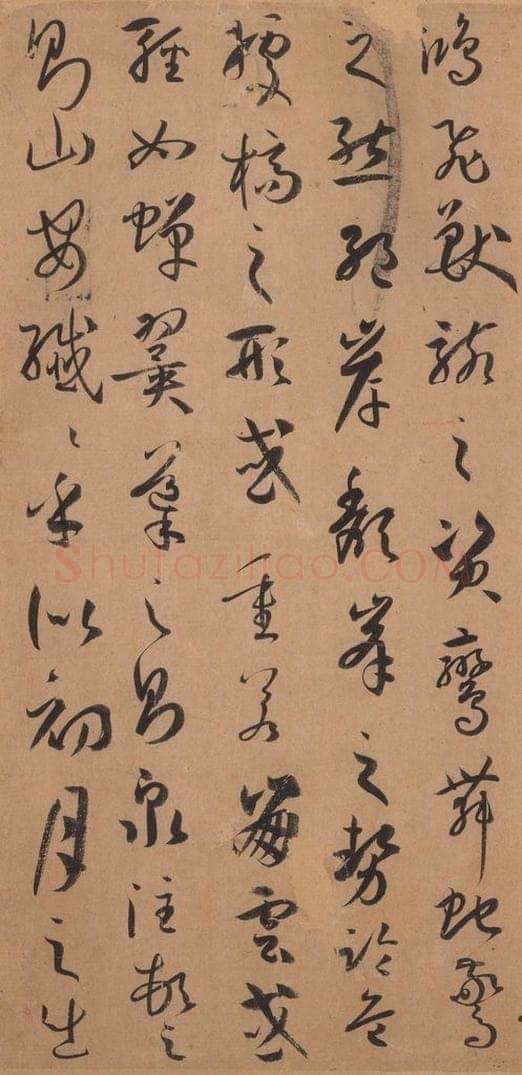 鴻飛獸駭之資鸞舞虵驚
之態絕岸頹峯之勢臨危
據槁之形或重若崩雲或
輕如蟬翼導之則泉注頓之
則山安纖〻乎似初月之出
Shufaziliao.COM